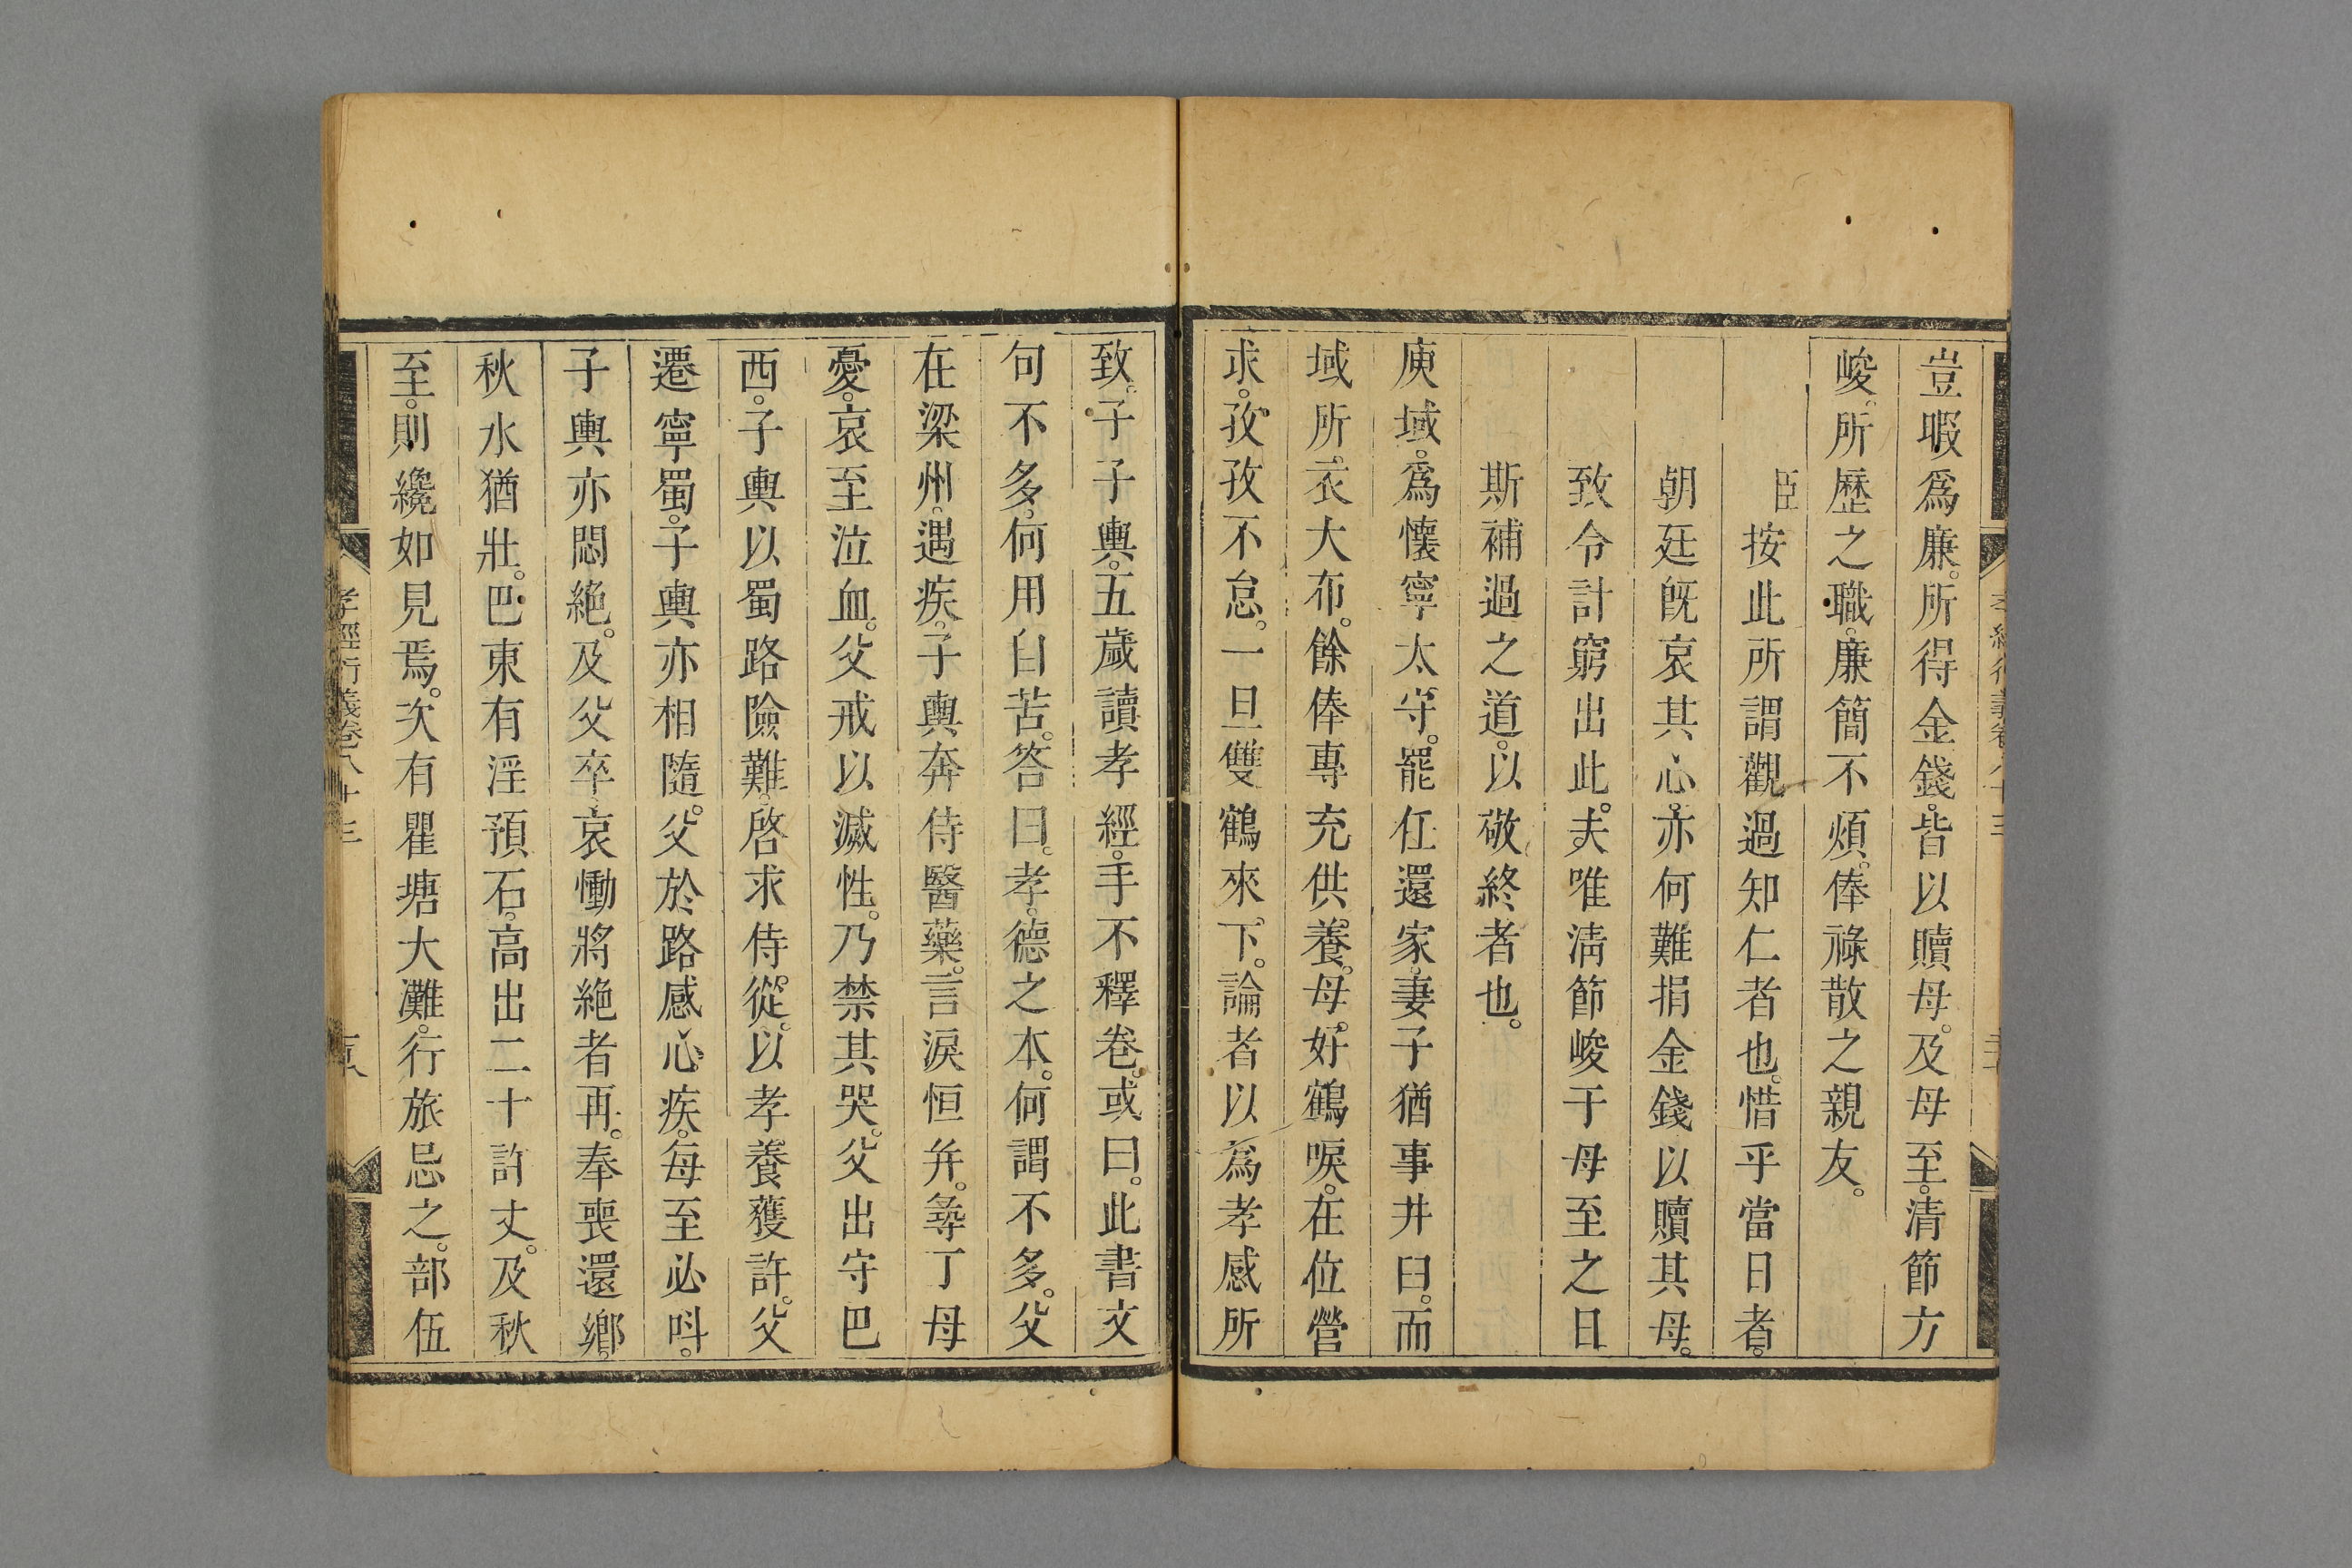 豈暇爲廉。所得金錢。皆以贖母。及母至。清節方
峻。所歴之職。廉簡不煩。俸祿散之親友。
臣按此所謂觀過知仁者也。惜乎當日者。
朝廷旣哀其心。亦何難捐金錢以贖其母。
致令計窮出此。夫唯淸節峻于母至之日
斯補過之道。以敬終者也。
庾域。爲懷寧太守。罷任還家。妻子猶事井臼。而
域所衣大布。餘俸專充供養。母好鶴唳。在位營
求。孜孜不怠。一旦雙鶴來下。論者以爲孝感所
致。子子輿。五歲讀孝經。手不釋卷。或曰。此書文
句不多。何用自苦。答曰。孝。德之本。何謂不多。父
在梁州。遇疾。子輿奔侍醫藥。言淚恒幷。㝷丁母
憂。哀至泣血。父戒以滅性。乃禁其哭。父出守巴
西。子輿以蜀路險難。啓求侍從。以孝養獲許。父
遷寧蜀。子輿亦相隨。父於路感心疾。每至必呌。
子輿亦悶絶。及父卒。哀慟將絶者再。奉喪還鄉。
秋水猶壯。巴東有淫預石。高出二十許丈。及秋
至。則纔如見焉。次有瞿塘大灘。行旅忌之。部伍
孝經衍義卷八十三